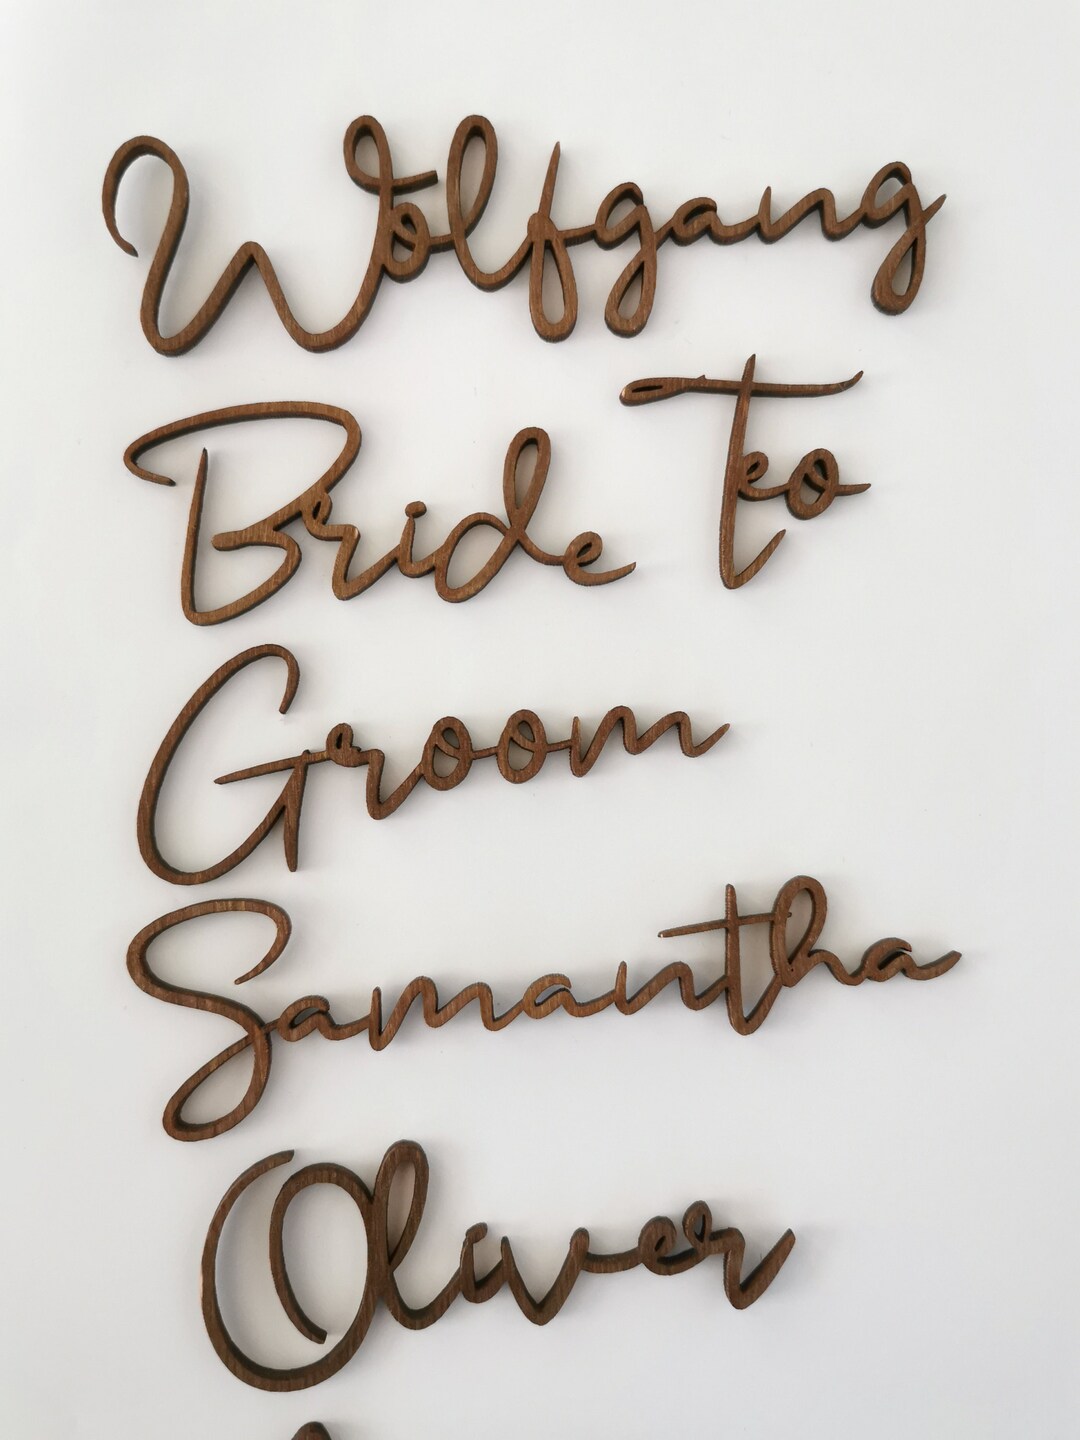 Wolfgang
Bride Teo
Groom
Samantha
Oliver